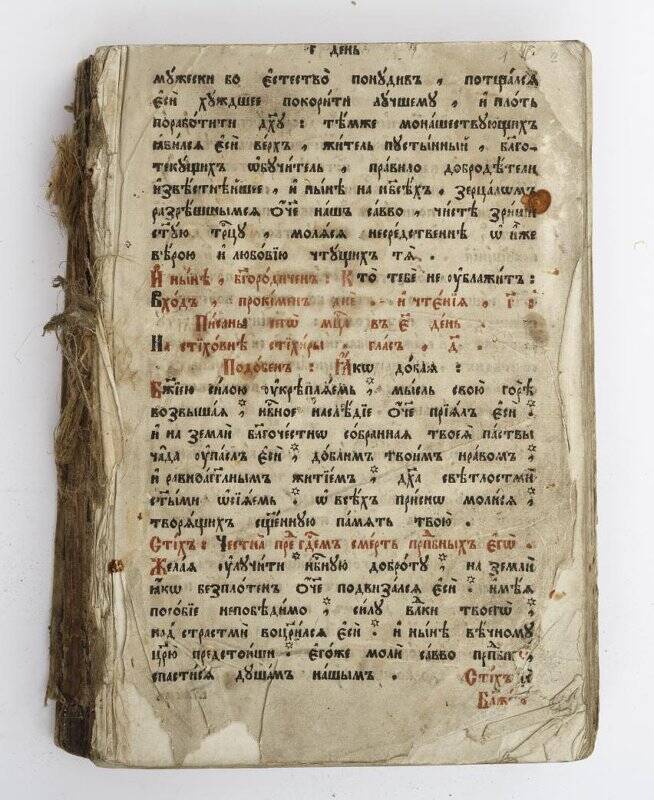 г҃ день
мꙋжески бо є҆стество̀ понꙋдивъ , потщалсѧ
є҆сѝ хꙋждшее покорити лꙋчшемꙋ , и҆ плоть
порабо́тити дх҃ꙋ : тѣ́мже монашествꙋющихъ
ꙗ҆вилсѧ є҆сѝ ве́рхъ , житель пꙋсты́нный , бл҃го-
текꙋщихъ ѡ҆бꙋчитель , правило добродѣтели
и҆звѣ́стнѣйшее , и҆ ны́нѣ на нб҃сѣ́хъ , зерцалѡмъ
разрѣшшымсѧ ѻ҆́ч҃е нашъ савво , чи́стѣ зриши
ст҃ꙋю трⷪ҇цꙋ , молѧсѧ несредственнѣ ѡ҆ и҆̀же
вѣ́рою и҆ любо́вїю чтꙋщихъ тѧ̀ .
И҆ ны́нѣ , бг҃оро́диченъ : Кто̀ тебѐ не ᲂу҆блажи́тъ :
Вхо́дъ , проки́менъ днѐ . и҆ чте́нїѧ , г҃ :
Пи́саны сегѡ̀ мцⷭ҇а въ є҃ де́нь .
На стїхо́внѣ стїхи́ры . гла́съ , д҃ .
Подо́бенъ : Ꙗ҆́кѡ до́блѧ :
Бж҃їею си́лою ᲂу҆крѣплѧ́емь , мы́сль свою̀ горѣ̀
возвыша́ѧ , нбⷭ҇ное наслѣ́дїе ѻ҆́ч҃е прїѧ́лъ є҆сѝ .
и҆ на землѝ бл҃гоче́стнѡ со́бранная твоеѧ̀ па́ствы
ча́да ᲂу҆па́слъ є҆сѝ , до́блимъ твои́мъ нра́вомъ ,
и҆ равноа́гг҃льнымъ житїе́мъ , дх҃а свѣ́тлостми
ст҃ы́ми ѡ҆сїѧ́емь . ѡ҆ всѣ́хъ при́снѡ моли́сѧ ,
творѧ́щихъ сщ҃е́ннꙋю па́мѧть твою̀ .
Сті́хъ : Честна̀ пред̾ гдⷭ҇емъ сме́рть прпⷣбныхъ є҆гѡ̀ .
Жела́ѧ ᲂу҆лꙋчи́ти нбⷭ҇нꙋю добро́тꙋ , на землѝ
ꙗ҆́кѡ безпло́тенъ ѻ҆́ч҃е подвиза́лсѧ є҆сѝ . и҆мѣ́ѧ
посо́бїе непобѣди́мо , си́лꙋ влⷣки твоегѡ̀ ,
над̾ страстьмѝ воцр҃и́лсѧ є҆сѝ . и҆ ны́нѣ вѣ́чномꙋ
цр҃ю̀ предстои́ши . є҆го́же молѝ са́вво прпⷣбне ,
спасти́сѧ дꙋша́мъ на́шымъ . Сті́хъ